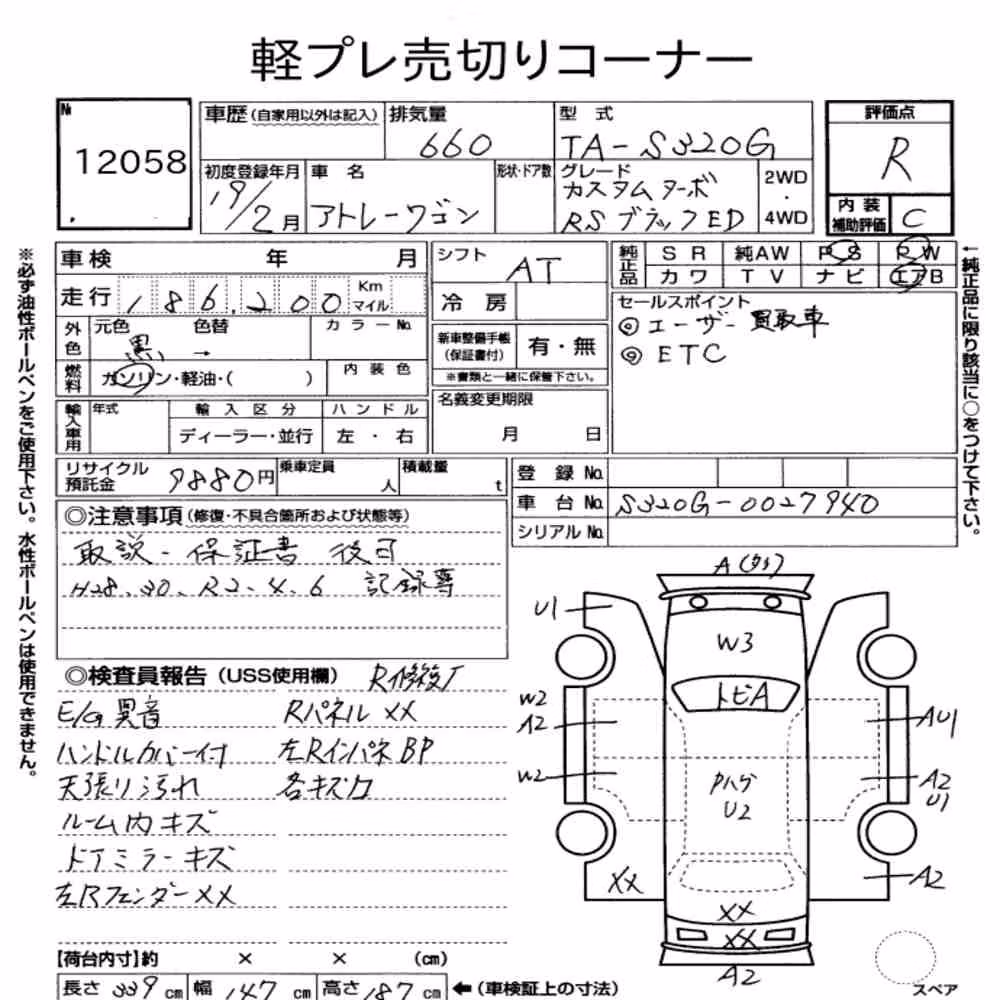 軽プレ売切りコーナー
№ 12058
車歴(自家用以外は記入)
排気量 660
型式 TA-S320G
評価点 R
初度登録年月 19/2月
車名 アトレーワゴン
形状・ドア数
グレード カスタムターボ RSブラックED
2WD・4WD
内装補助評価 C
車検 年 月
走行 186,200 Km マイル
外色 元色 色替 黒 →
カラーNo.
燃料 ガソリン・軽油・( )
内装色
輸入車用 年式
輸入区分 ディーラー・並行
ハンドル 左・右
シフト AT
冷房
新車整備手帳(保証書付) 有・無
※書類と一緒に保管下さい。
名義変更期限 月 日
純正品 SR 純AW PS PW
カワ TV ナビ エアB
セールスポイント
◎ユーザー買取車
◎ETC
リサイクル預託金 9880円
乗車定員 人
積載量 t
登録No.
車台No. S320G-0027940
シリアルNo.
◎注意事項(修復・不具合箇所および状態等)
取説・保証書 後可
H28.30、R2.4.6 記録簿
◎検査員報告(USS使用欄) R修複歴
E/G異音
ハンドルカバー付
天張り汚れ
ルーム内キズ
ドアミラーキズ
左RフェンダーXX
RパネルXX
左RインパネBP
各キズ凹
【荷台内寸】約 × × (cm)
長さ 339cm 幅 147cm 高さ 187cm ←(車検証上の寸法)
A
U1
W3
トビA
W2
A2
W2
AU1
A2
U1
Pハゲ
U2
XX
A2
XX
XX
A2
スペア
※必ず油性ボールペンをご使用下さい。水性ボールペンは使用できません。
←純正品に限り該当に○をつけて下さい。